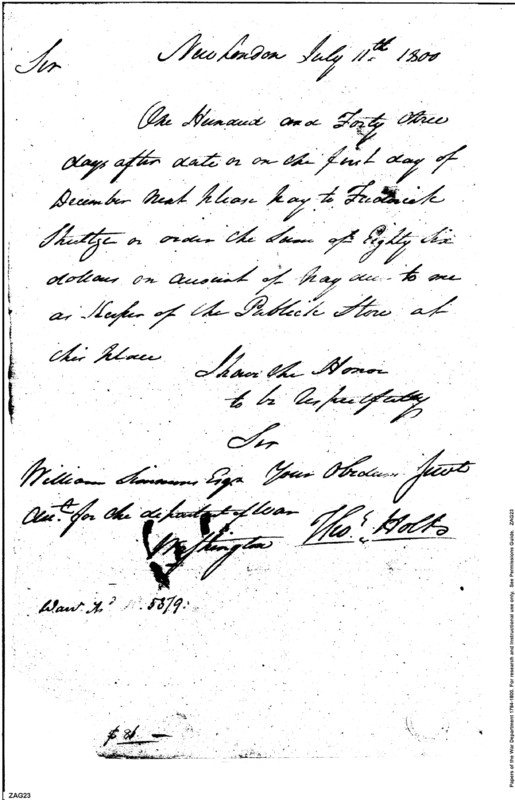 New London July 11th 1800
Sir
One Hundred and Forty three
days after date or on the first day of
December next please pay to Frederick
Shultze or order the Sum of Eighty Six
dollars on account of pay due to me
as Keeper of the Publick Store at
this place
I have the Honor
to be Respectfully
Sir
William Simmons Esqr Your Obedient Servt
Acct. for the department of War
Washington Thos. Holt
Warr. No 5379.
$ 86 —
ZAG23
Papers of the War Department 1784-1800. For research and instructional use only. See Permissions Guide. ZAG23